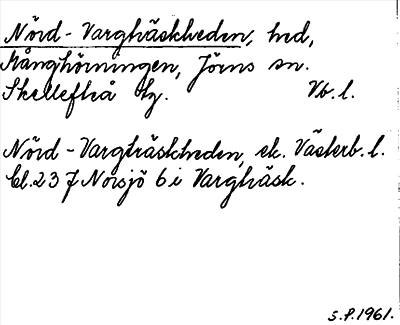 Nörd-Vargträskheden, hed,
Månghörningen, Jörns sn.
Skellefteå tg. Vb.l.
Nörd-Vargträskheden, ek. Västerb.l.
bl.23 J Norsjö 6 i Vargträsk.
S.P.1961.